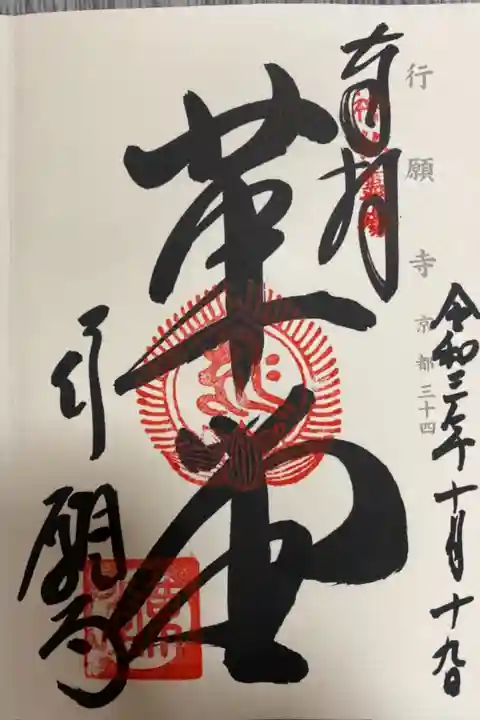 行願寺 京都三十四
令和三年十月十九日
奉拝
革堂
行願寺